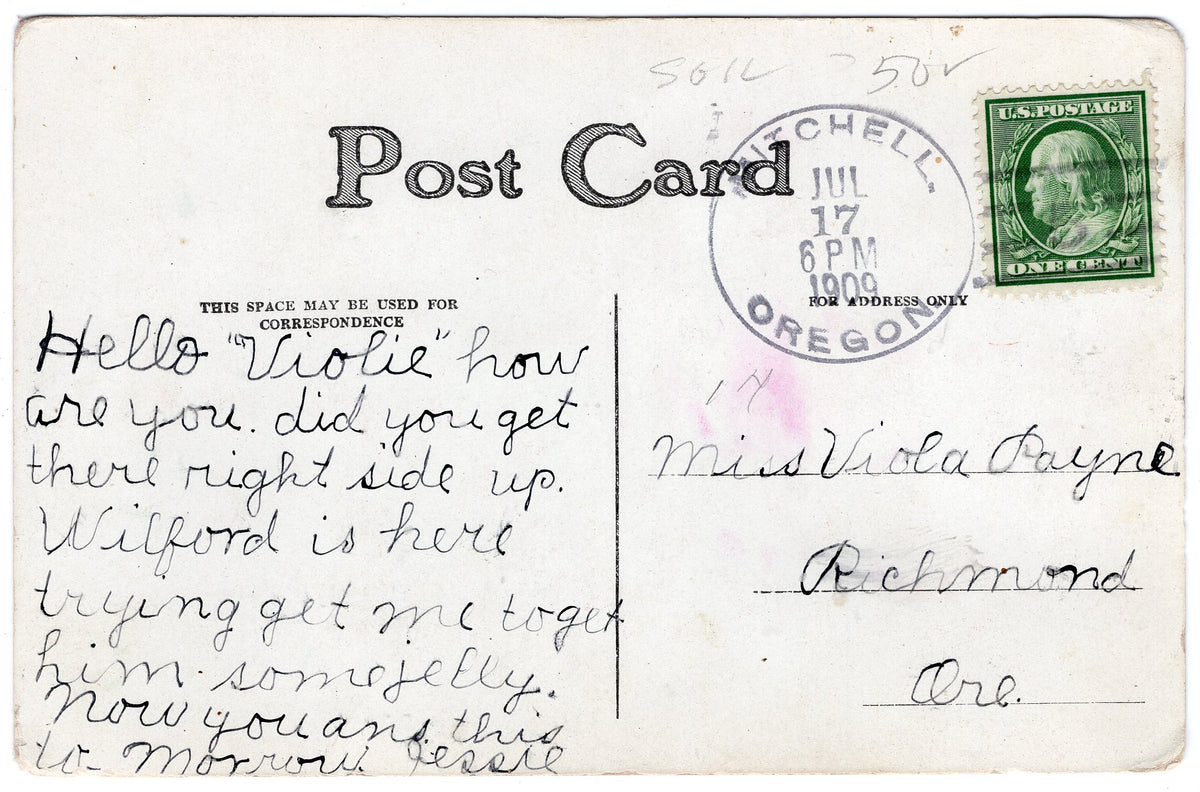 50v
Post Card
MITCHELL.
JUL
17
6 PM
1909
OREGON.
U.S. POSTAGE
ONE CENT
THIS SPACE MAY BE USED FOR
CORRESPONDENCE
FOR ADDRESS ONLY
Hello "Violie" how
are you. did you get
there right side up.
Wilford is here
trying get me to get
him some jelly.
Now you ans this
to-Morrow. Jessie
Miss Viola Payne
Richmond
Ore.